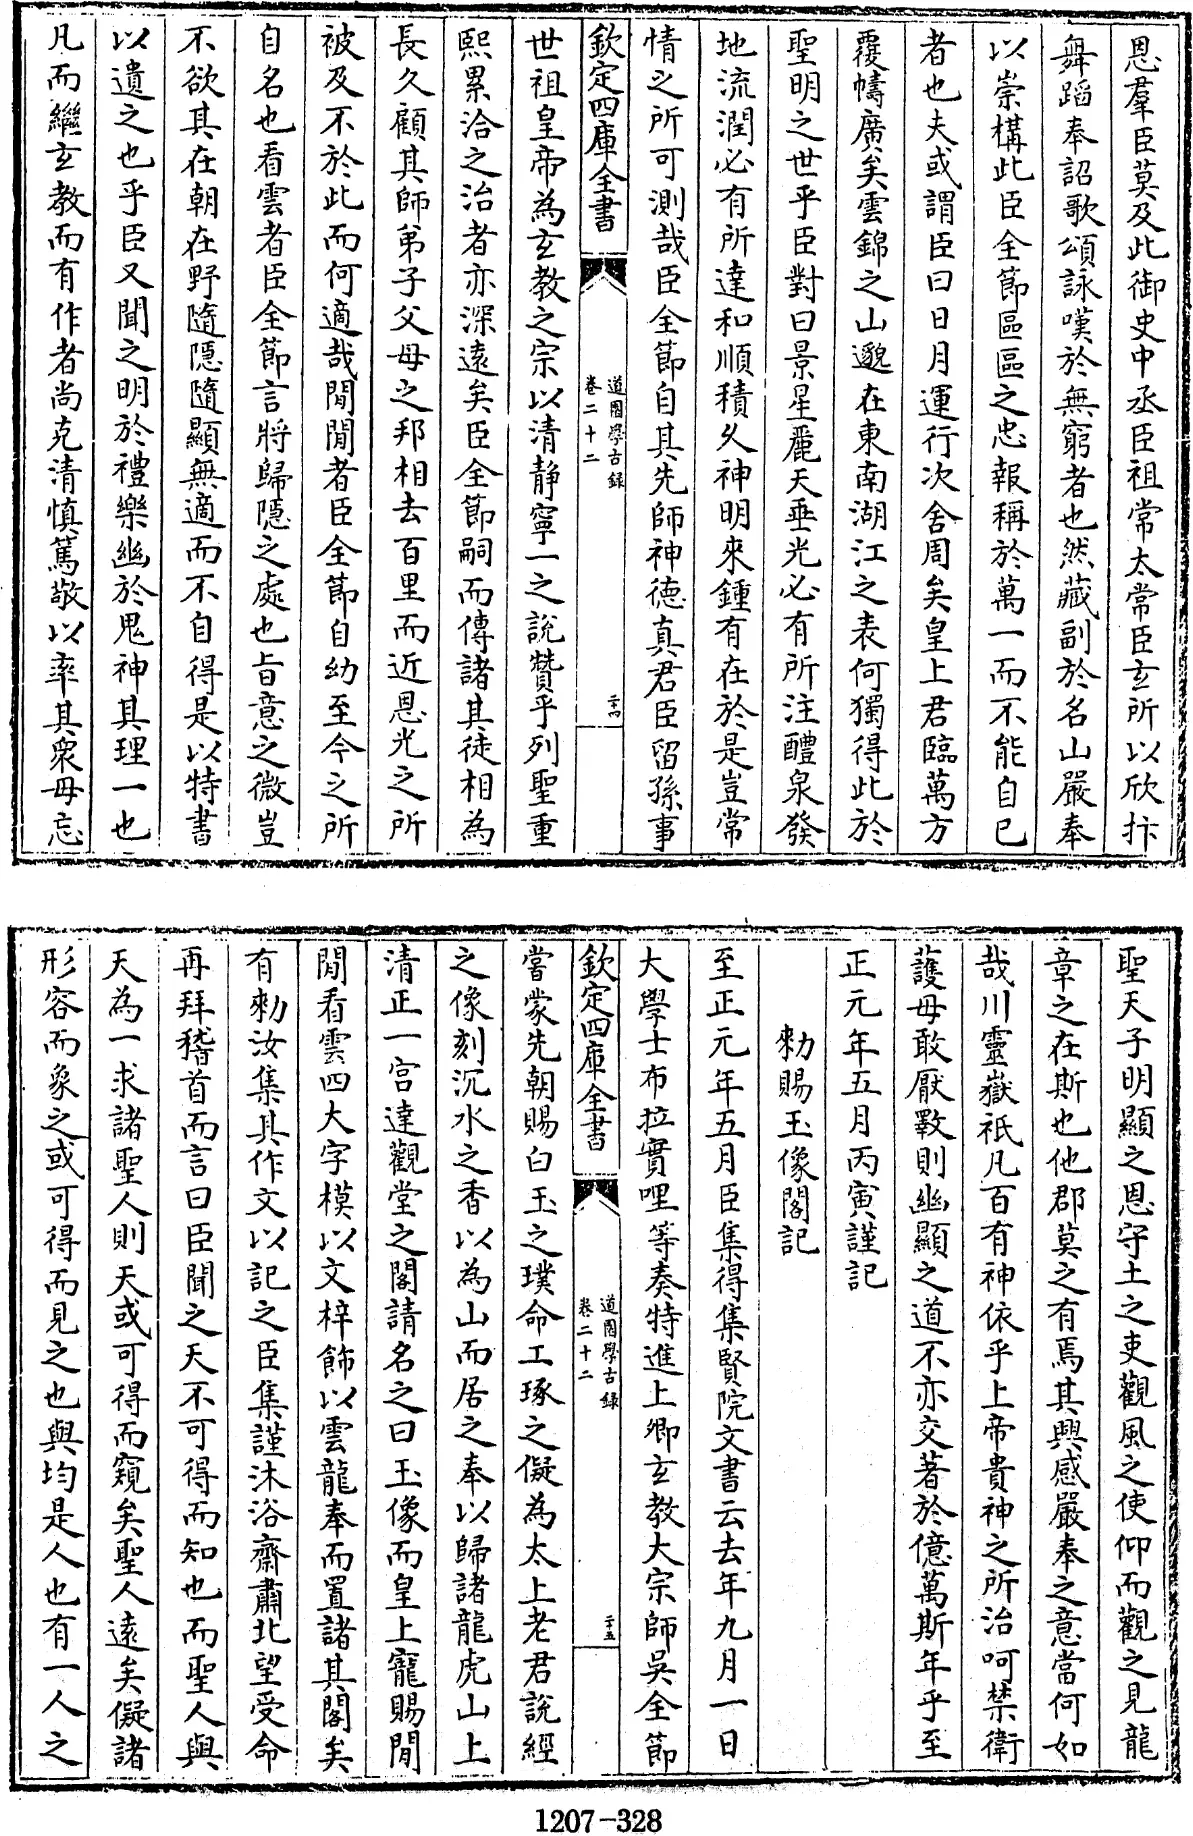 恩羣臣莫及此御史中丞臣祖常太常臣玄所以欣抃
舞蹈奉詔歌頌詠嘆於無窮者也然藏副於名山嚴奉
以崇構此臣全節區區之忠報稱於萬一而不能自已
者也夫或謂臣曰日月運行次舍周矣皇上君臨萬方
覆幬廣矣雲錦之山邈在東南湖江之表何獨得此於
聖明之世乎臣對曰景星麗天垂光必有所注醴泉發
地流潤必有所達和順積久神明來鍾有在於是豈常
情之所可測哉臣全節自其先師神德真君臣留孫事
欽定四庫全書
道園學古録
卷二十二
二十四
世祖皇帝為玄教之宗以清靜寧一之說贊乎列聖重
熙累洽之治者亦深遠矣臣全節嗣而傳諸其徒相為
長久顧其師弟子父母之邦相去百里而近恩光之所
被及不於此而何適哉閒閒者臣全節自幼至今之所
自名也看雲者臣全節言將歸隱之處也旨意之微豈
不欲其在朝在野隨隱隨顯無適而不自得是以特書
以遺之也乎臣又聞之明於禮樂幽於鬼神其理一也
凡而繼玄教而有作者尚克清慎篤敬以率其衆毋忘
聖天子明顯之恩守土之吏觀風之使仰而觀之見龍
章之在斯也他郡莫之有焉其興感嚴奉之意當何如
哉川靈嶽祇凡百有神依乎上帝貴神之所治呵禁衛
護毋敢厭斁則幽顯之道不亦交著於億萬斯年乎至
正元年五月丙寅謹記
勑賜玉像閣記
至正元年五月臣集得集賢院文書云去年九月一日
大學士布拉實哩等奏特進上卿玄教大宗師吳全節
欽定四庫全書
道園學古録
卷二十二
二十五
嘗蒙先朝賜白玉之璞命工琢之儗為太上老君說經
之像刻沉水之香以為山而居之奉以歸諸龍虎山上
清正一宮達觀堂之閣請名之曰玉像而皇上寵賜閒
閒看雲四大字模以文梓飾以雲龍奉而置諸其閣矣
有勑汝集其作文以記之臣集謹沐浴齋肅北望受命
再拜稽首而言曰臣聞之天不可得而知也而聖人與
天為一求諸聖人則天或可得而窺矣聖人遠矣儗諸
形容而象之或可得而見之也與均是人也有一人之
1207-328